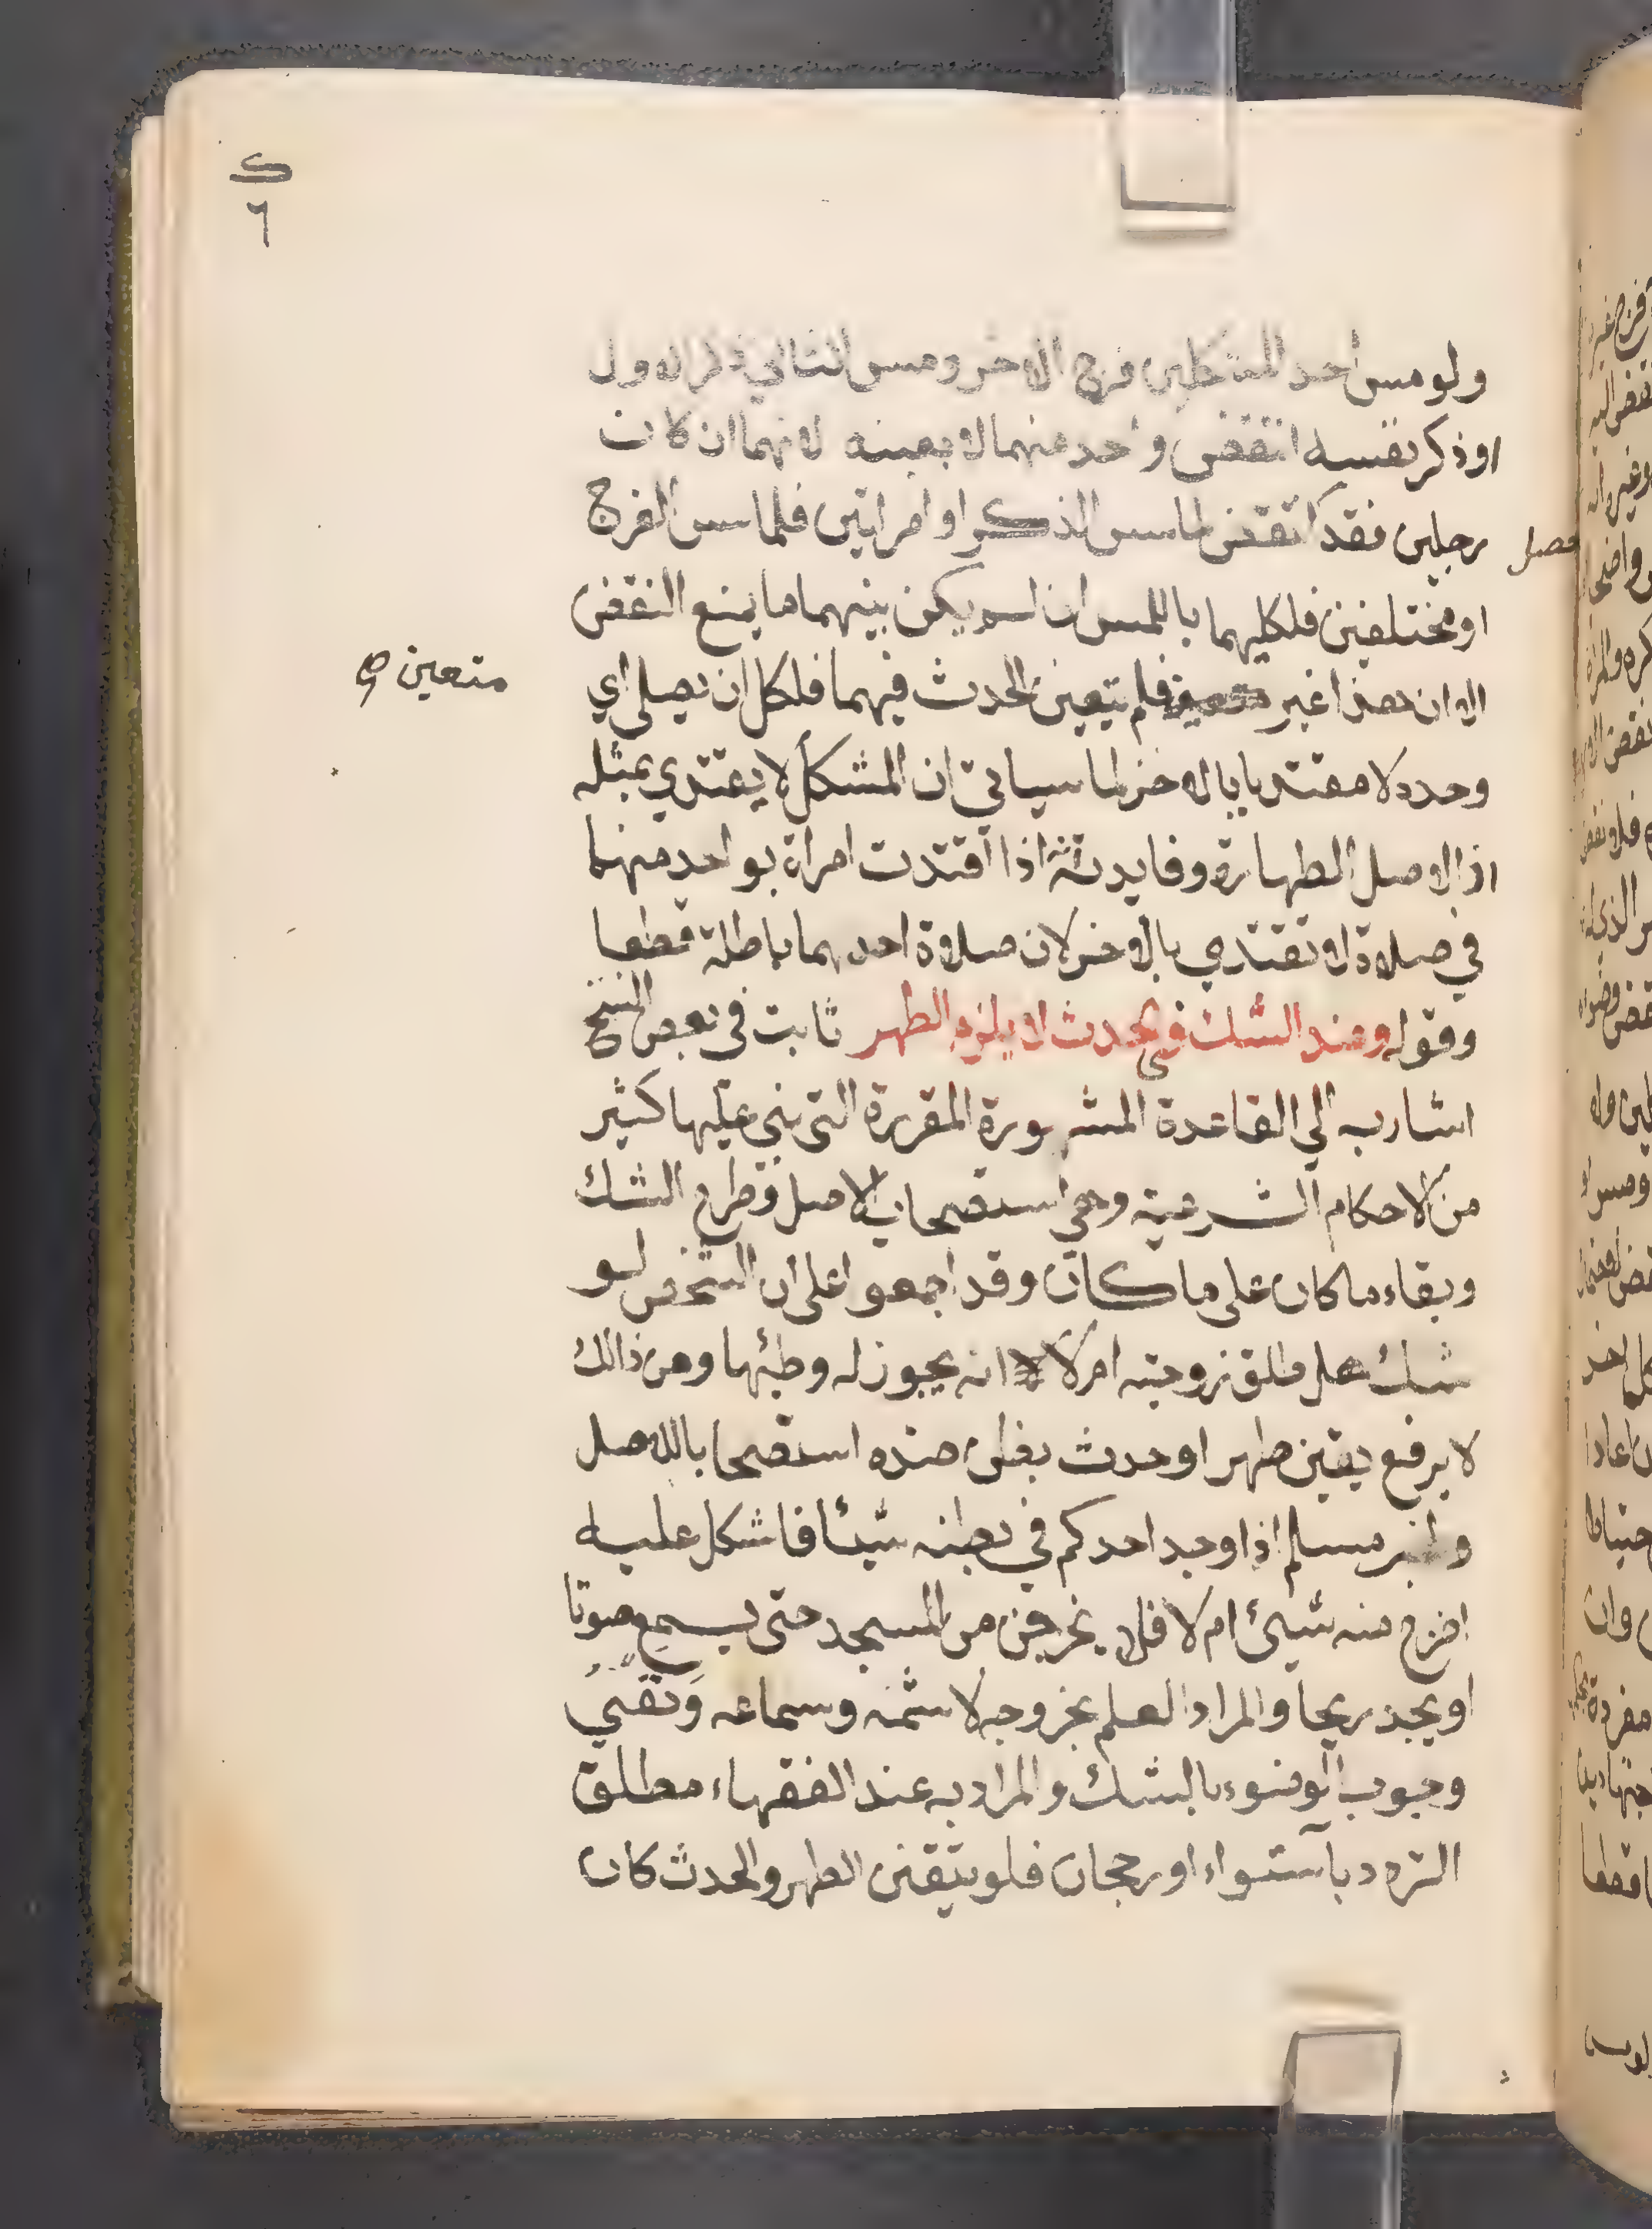 ك
٦
ولو مس احد المشكلين فرج الاخر ومس الثاني ذكر الاول
او ذكر نفسه انتقض واحد منهما لا بعينه لانهما ان كانا
رجلين فقد انتقض لماس الذكر او امراتين فلماس الفرج
حصل
او مختلفين فلكليهما باللمس ان لم يكن بينهما ما يمنع النقض
الا ان هذا غير فلم يتعين الحدث فيهما فلكل ان يصلي اي
متعين صح
وحده لا مقتديا بالاخر لما سياتي ان المشكل لا يقتدي بمثله
اذ الاصل الطهارة وفايدته اذا اقتدت امراة بواحد منهما
في صلاة لا تقتدي بالاخر لان صلاة احدهما باطلة قطعا
وقوله وعند الشك في الحدث لا يلزم الطهر ثابت في بعض النسخ
اشار به الي القاعدة المشهورة المقررة التي بني عليها كثير
من الاحكام الشرعية وهي استصحاب الاصل وطرح الشك
وبقاء ما كان على ما كان وقد اجمعوا على ان الشخص لو
شك هل طلق زوجته ام لا انه يجوز له وطئها ومن ذالك
لا يرفع يقين طهر او حدث بظن ضده استصحابا للاصل
ولخبر مسلم اذا وجد احدكم في بطنه شيئا فاشكل عليه
اخرج منه شيئ ام لا فلا يخرجن من المسجد حتى يسمع صوتا
او يجد ريحا والمراد العلم بخروجه لا شمه وسماعه ونفي
وجوب الوضوء بالشك والمراد به عند الفقهاء مطلق
التردد باستواء او رجحان فلو تيقن الطهر والحدث كان